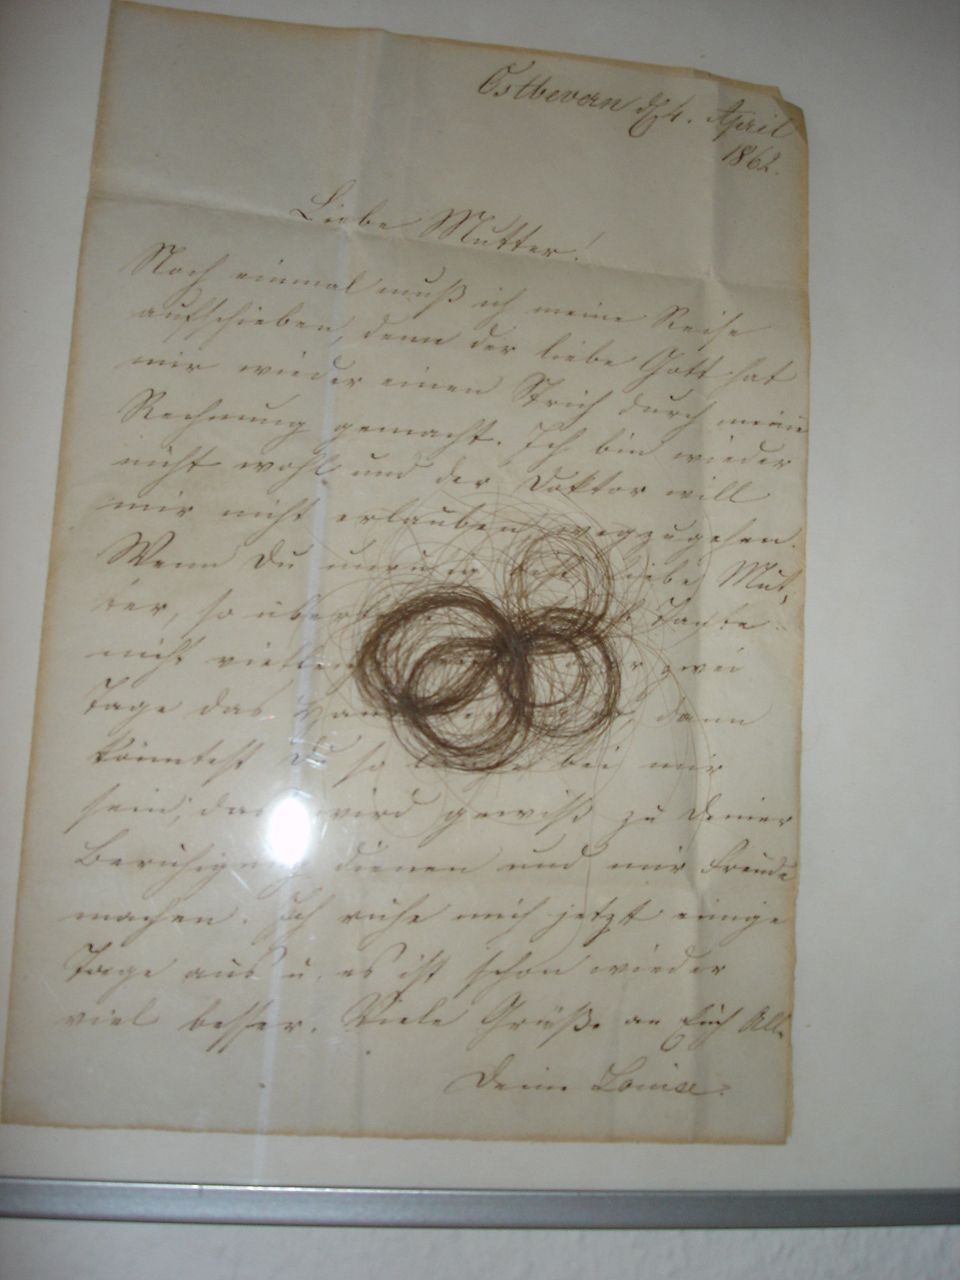 Ostbevern d. 4. April
1862.
Liebe Mutter!
Noch einmal muß ich meine Reise
aufschieben, denn der liebe Gott hat
mir wieder einen Strich durch meine
Rechnung gemacht. Ich bin wieder
nicht wohl und der Doktor will
mir nicht erlauben wegzugehen.
Wenn Du unruhig bist, liebe Mut,
ter, so Tante
nicht zwei
Tage das dann
könntest Du so bei mir
sein; das wird gewiß zu Deiner
Beruhigung dienen und mir Freude
machen. Ich ruhe mich jetzt einige
Tage aus u. es ist schon wieder
viel besser. Viele Grüße an Euch All.
Deine Louise.